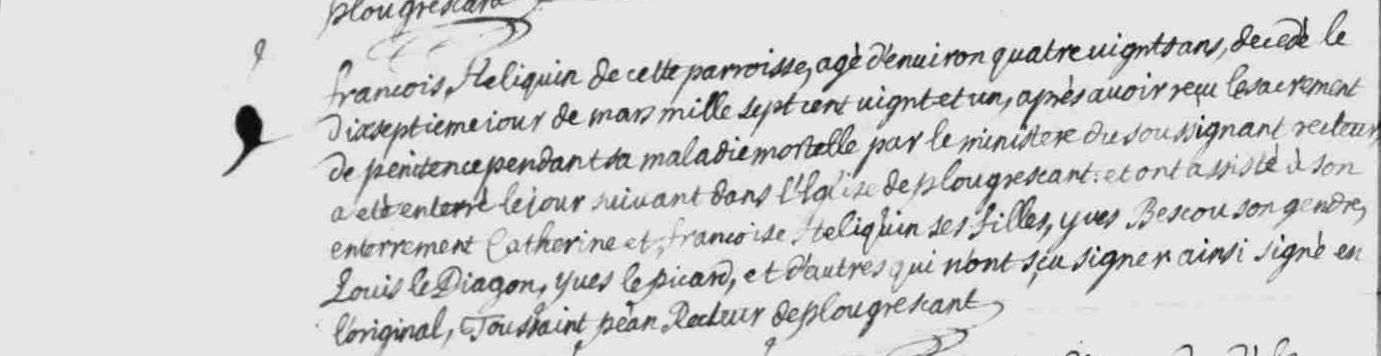 plougrescant
françois Heliquin de cette parroisse, agé d'enuiron quatre uignts ans, decedé le
dixseptieme iour de mars mille sept cent uignt et un, après auoir reçu le sacrement
de penitence pendant sa maladie mortelle par le ministere du soussignant recteur,
a eté enterré le jour suiuant dans l'Eglise de plougrescant: et ont assisté à son
enterrement Catherine et françoise Heliquin ses filles, yves Bescou son gendre,
Louis le Diagon, yves le picard, et d'autres qui n'ont sçu signer ainsi signé en
l'original, Toussaint pèan Recteur de plougrescant